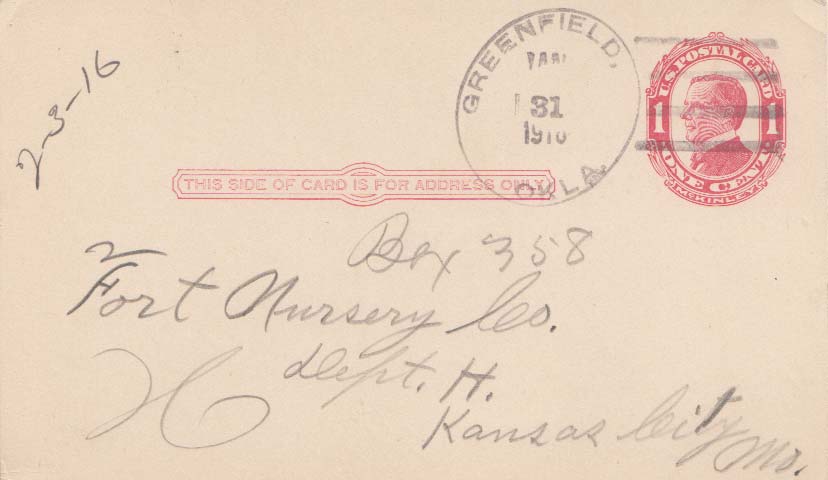 2-3-16
GREENFIELD,
JAN
31
1916
OKLA.
U.S. POSTAL CARD
1 1
ONE CENT
McKINLEY
THIS SIDE OF CARD IS FOR ADDRESS ONLY
Box 358
Fort Nursery Co.
Dept. H.
Kansas City
Mo.